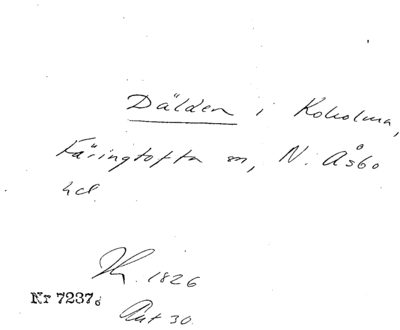 Dälden i Koholma,
Färingtofta sn, N. Åsbo
hd.
Kr. 1826
Nr 7237.
Ant 30.